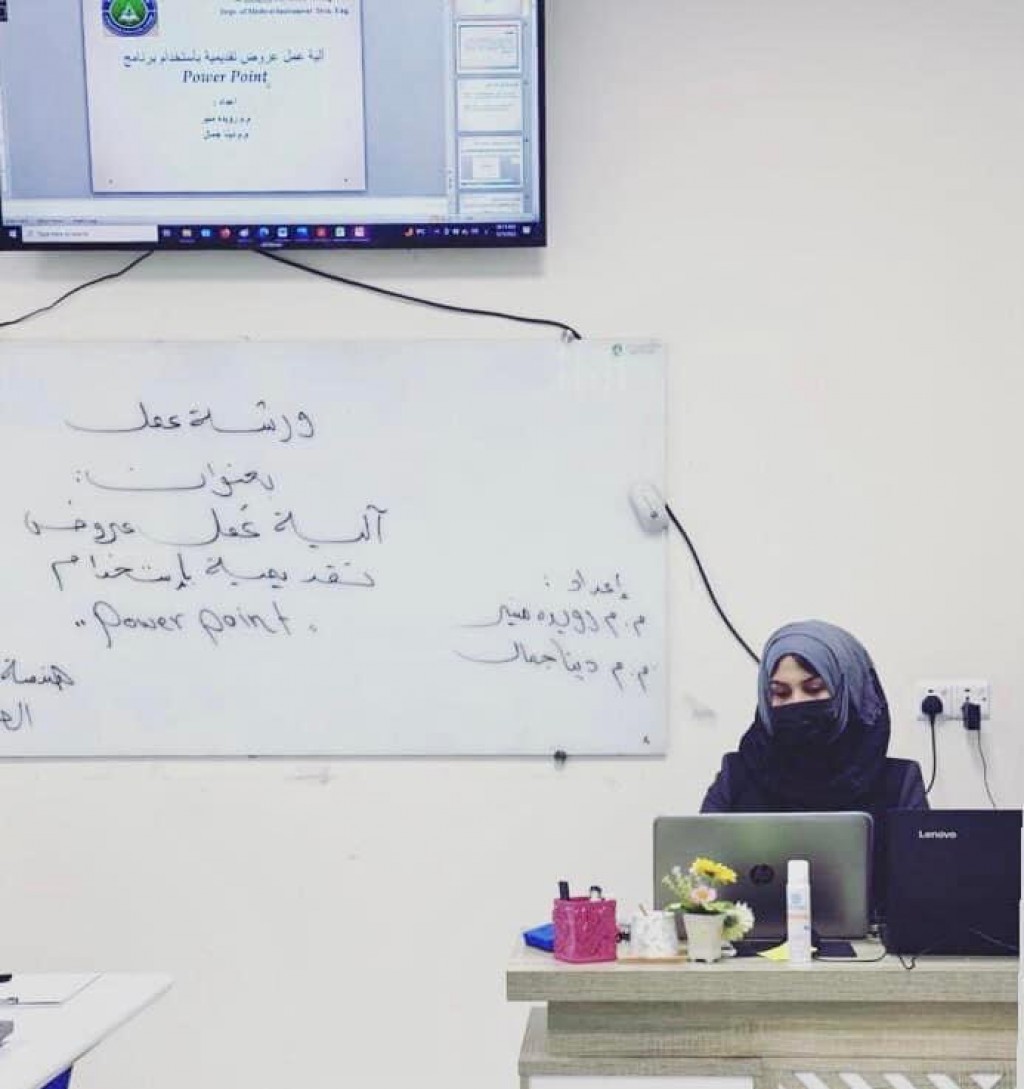 Dept. of Medical Instrument Tech. Eng.
آلية عمل عروض تقديمية بأستخدام برنامج
Power Point
اعداد :
م.م رويدة منير
م.م دينا جمال
Type here to search
ورشة عمل
بعنوان:
آلية عمل عروض
تقديمية بإستخدام
"Power point"
هندسة
إعداد :
م.م رويده منير
م.م دينا جمال
hp
Lenovo